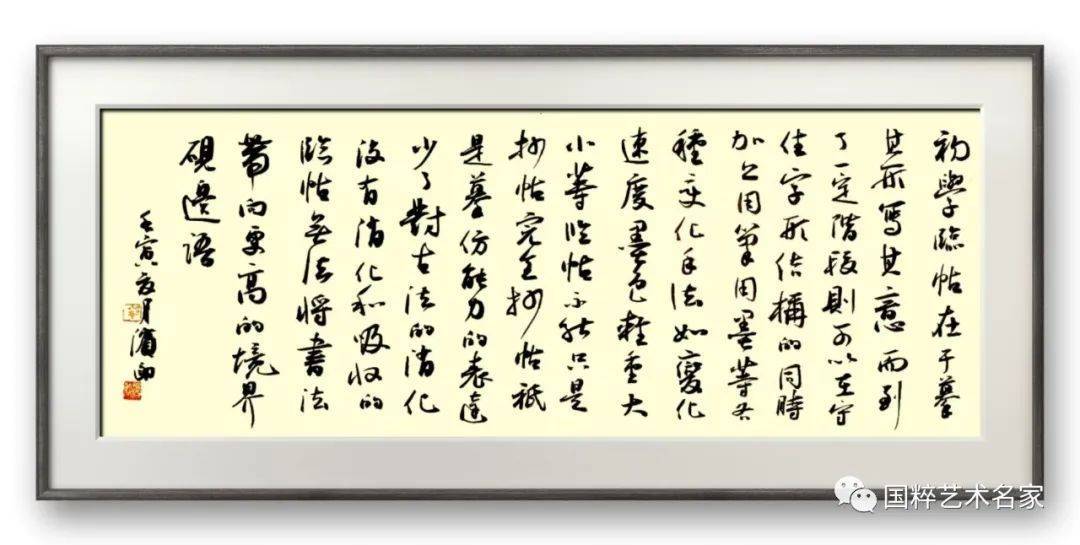 初学临帖在于摹
其形写其意而到
了一定阶段则可以在守
住字形结构的同時
加上用筆用墨等各
種变化手法如變化
速度墨色輕重大
小等临帖不能只是
抄帖完全抄帖祇
是摹仿能力的表達
少了對古法的消化
没有消化和吸收的
臨帖无法將書法
帶向更高的境界
硯邊語
壬寅夏月濱
国粹艺术名家